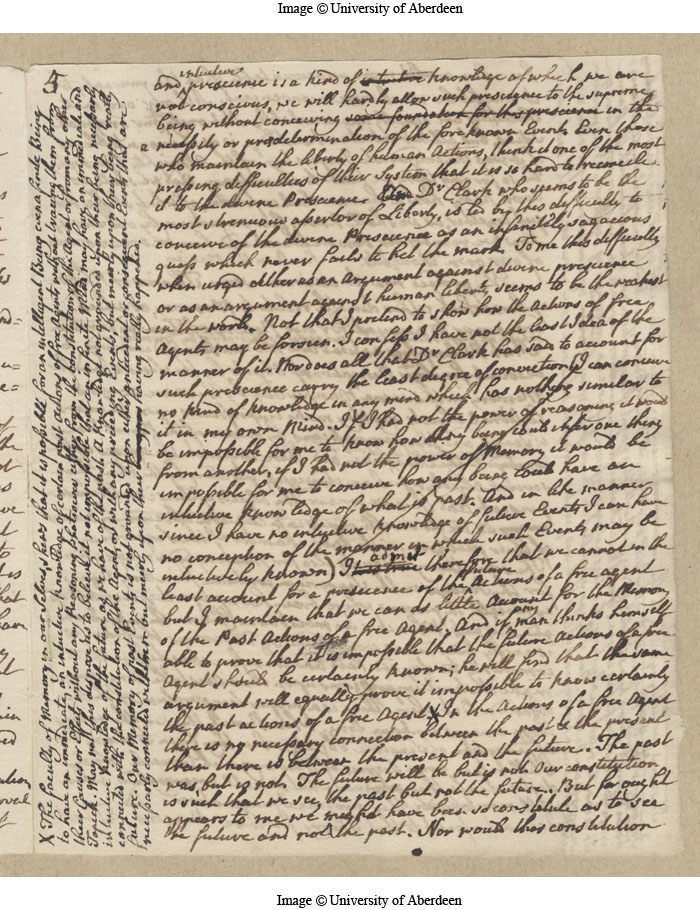 Image © University of Aberdeen
4
intuitive
and prescience is a kind of intuitive knowledge of which we are
not conscious, we will hardly allow such prescience to the supreme
being without conceiving some foundation for this prescience in the
necessity or predetermination of the fore known Events Even those
who maintain the liberty of human Actions, think it one of the most
pressing difficulties of their System that it is so hard to reconcile
it to the divine Prescience Dr Clark who seems to be the
most strenuous assertor of Liberty, is led by this difficulty to
conceive of the divine Prescience as an infinitely sagacious
guess which never fails to hit the mark To me this difficulty
when urged either as an Argument against divine prescience
or as an argument against human liberty seems to be the weakest
in the world. Not that I pretend to show how the Actions of free
Agents may be forseen. I confess I have not the least Idea of the
manner of it. Nor does all that Dr Clark has said to account for
such prescience carry the least degree of conviction I can conceive
no kind of knowledge in any mind which has nothing similar to
it in my own Mind. If I had not the power of reasoning it would
be impossible for me to know how any being could infer one thing
from another, if I had not the power of Memory it would be
impossible for me to conceive how any being could have an
intuitive knowledge of what is past. And in like manner
since I have no intuitive knowledge of future Events I can have
no conception of the manner in which such Events may be
intuitively known) I admit therefore that we cannot in the
future
least account for a prescience of the Actions of a free agent
but I maintain that we can as little Account for the Memory
any
of the Past Actions of a free Agent. And if man thinks himself
able to prove that it is impossible that the future Actions of a free
Agent should be certainly known; he will find that the same
argument will equally prove it impossible to know certainly
the past actions of a free Agent X In the Actions of a free Agent
there is no necessary connection between the past & the present
than there is between the present and the future. The past
was, but is not. The future will be but is not. Our constitution
is such that we see the past but not the future. But for ought
appears to me we might have been so constitute as to see
the future and not the past. Nor would this constitution
X The faculty of Memory in our selves shews that it is possible for an intelligent Being even a finite Being
to have an immediate, an intuitive knowledge of certain past actions of free Agents without knowing them from
their Causes or Effects, without any Reasoning that draws either from the constitution of the Agent or from any other
Topick. May not this dispose us to believe it not impossible that an infinite Mind may have an immediate and
intuitive knowledge of the future as we have of the past. A knowledge not grounded upon their being necessarily
connected with the constitution of the Agent, or with any preceeding Events, but meerly upon their being really
future. Our Memory of past Events is not grounded upon any either antecedent or consequent Events that are
necessarily connected with them but meerly upon their having really happened.
Image © University of Aberdeen